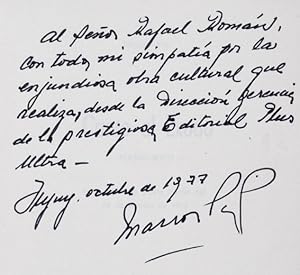 Al Señor Rafael Román,
con todo mi simpatía por la
enjundiosa obra cultural que
realiza, desde la Dirección gerencia
de la prestigiosa Editorial Plus
Ultra —
Jujuy, octubre de 1977